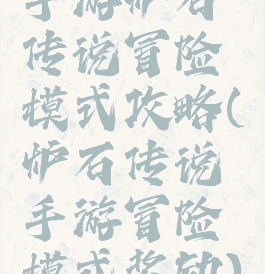 手游炉石
传说冒险
模式攻略(
炉石传说
手游冒险
模式奖励)